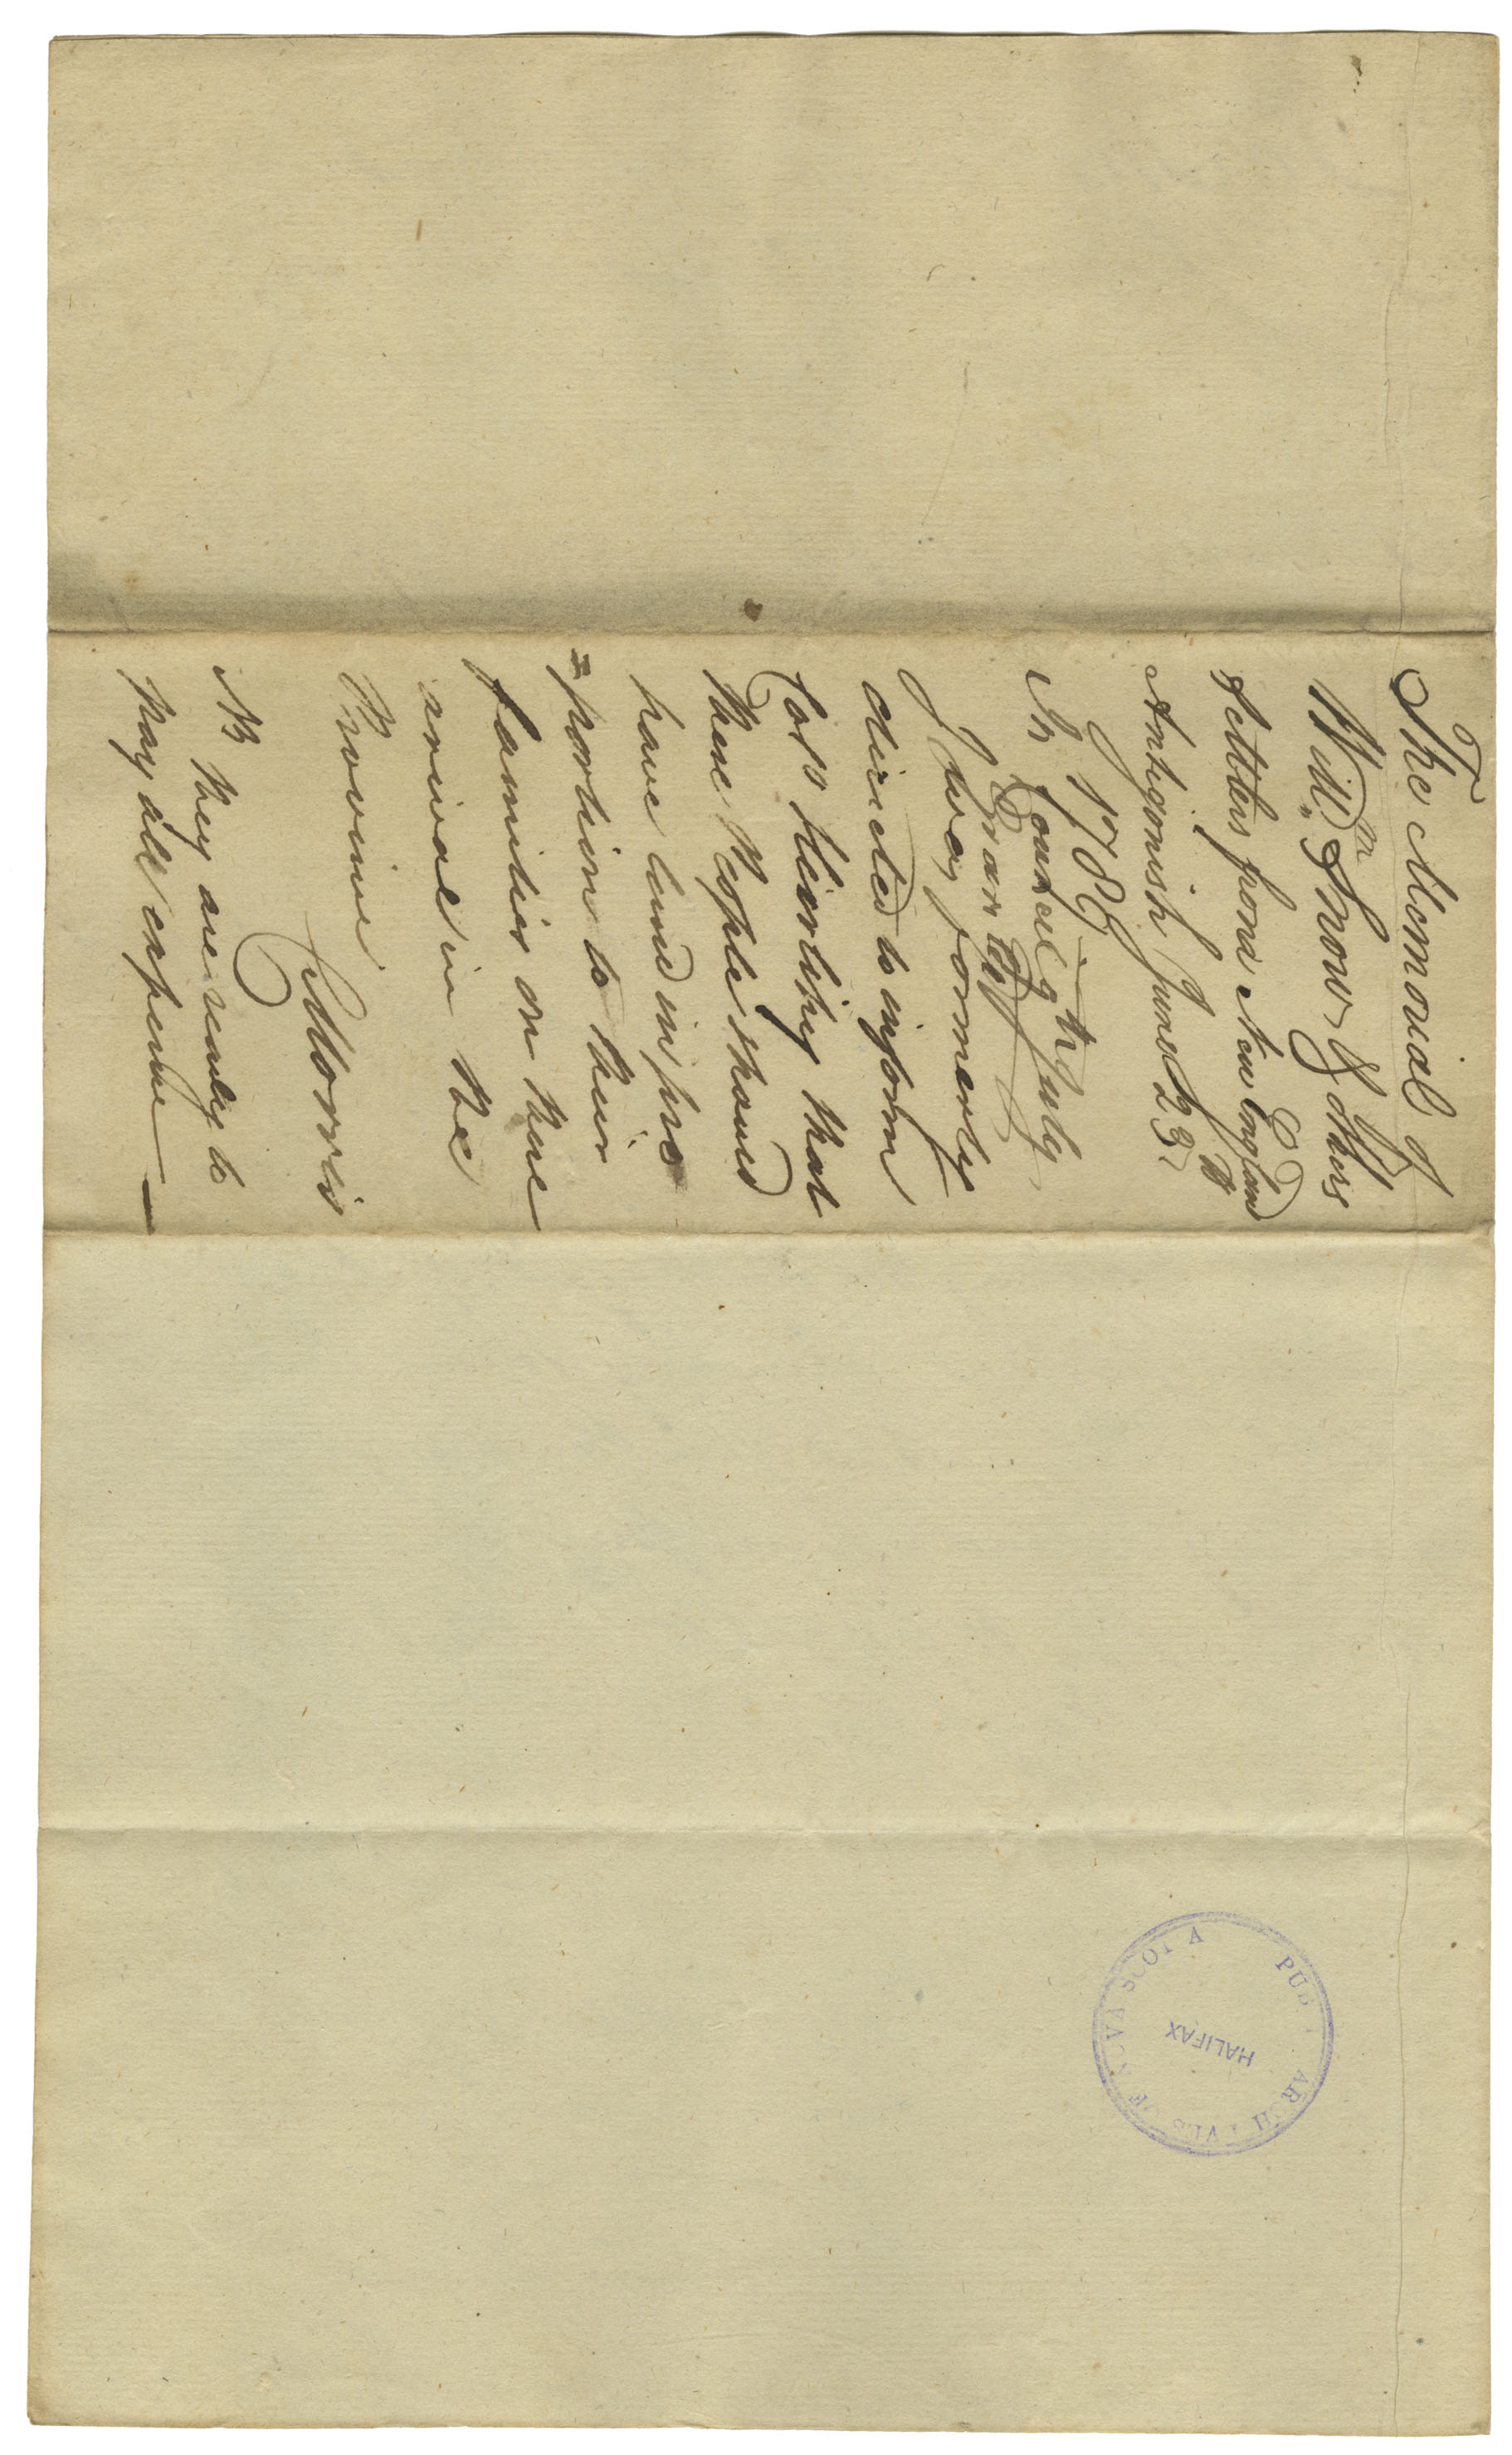 The Memorial of
Willm Snow & others
Settlers from New England to
Antigonish June 23d
1786
In Council 9th July
Granted
I was formerly
directed to inform
Capt Heirlihy that
these People should
have land in pro
=portion to their
families on there
arival in the
Province
CMorris
NB they are ready to
pay all expence
PUB ARCHIVES OF NOVA SCOTIA
HALIFAX